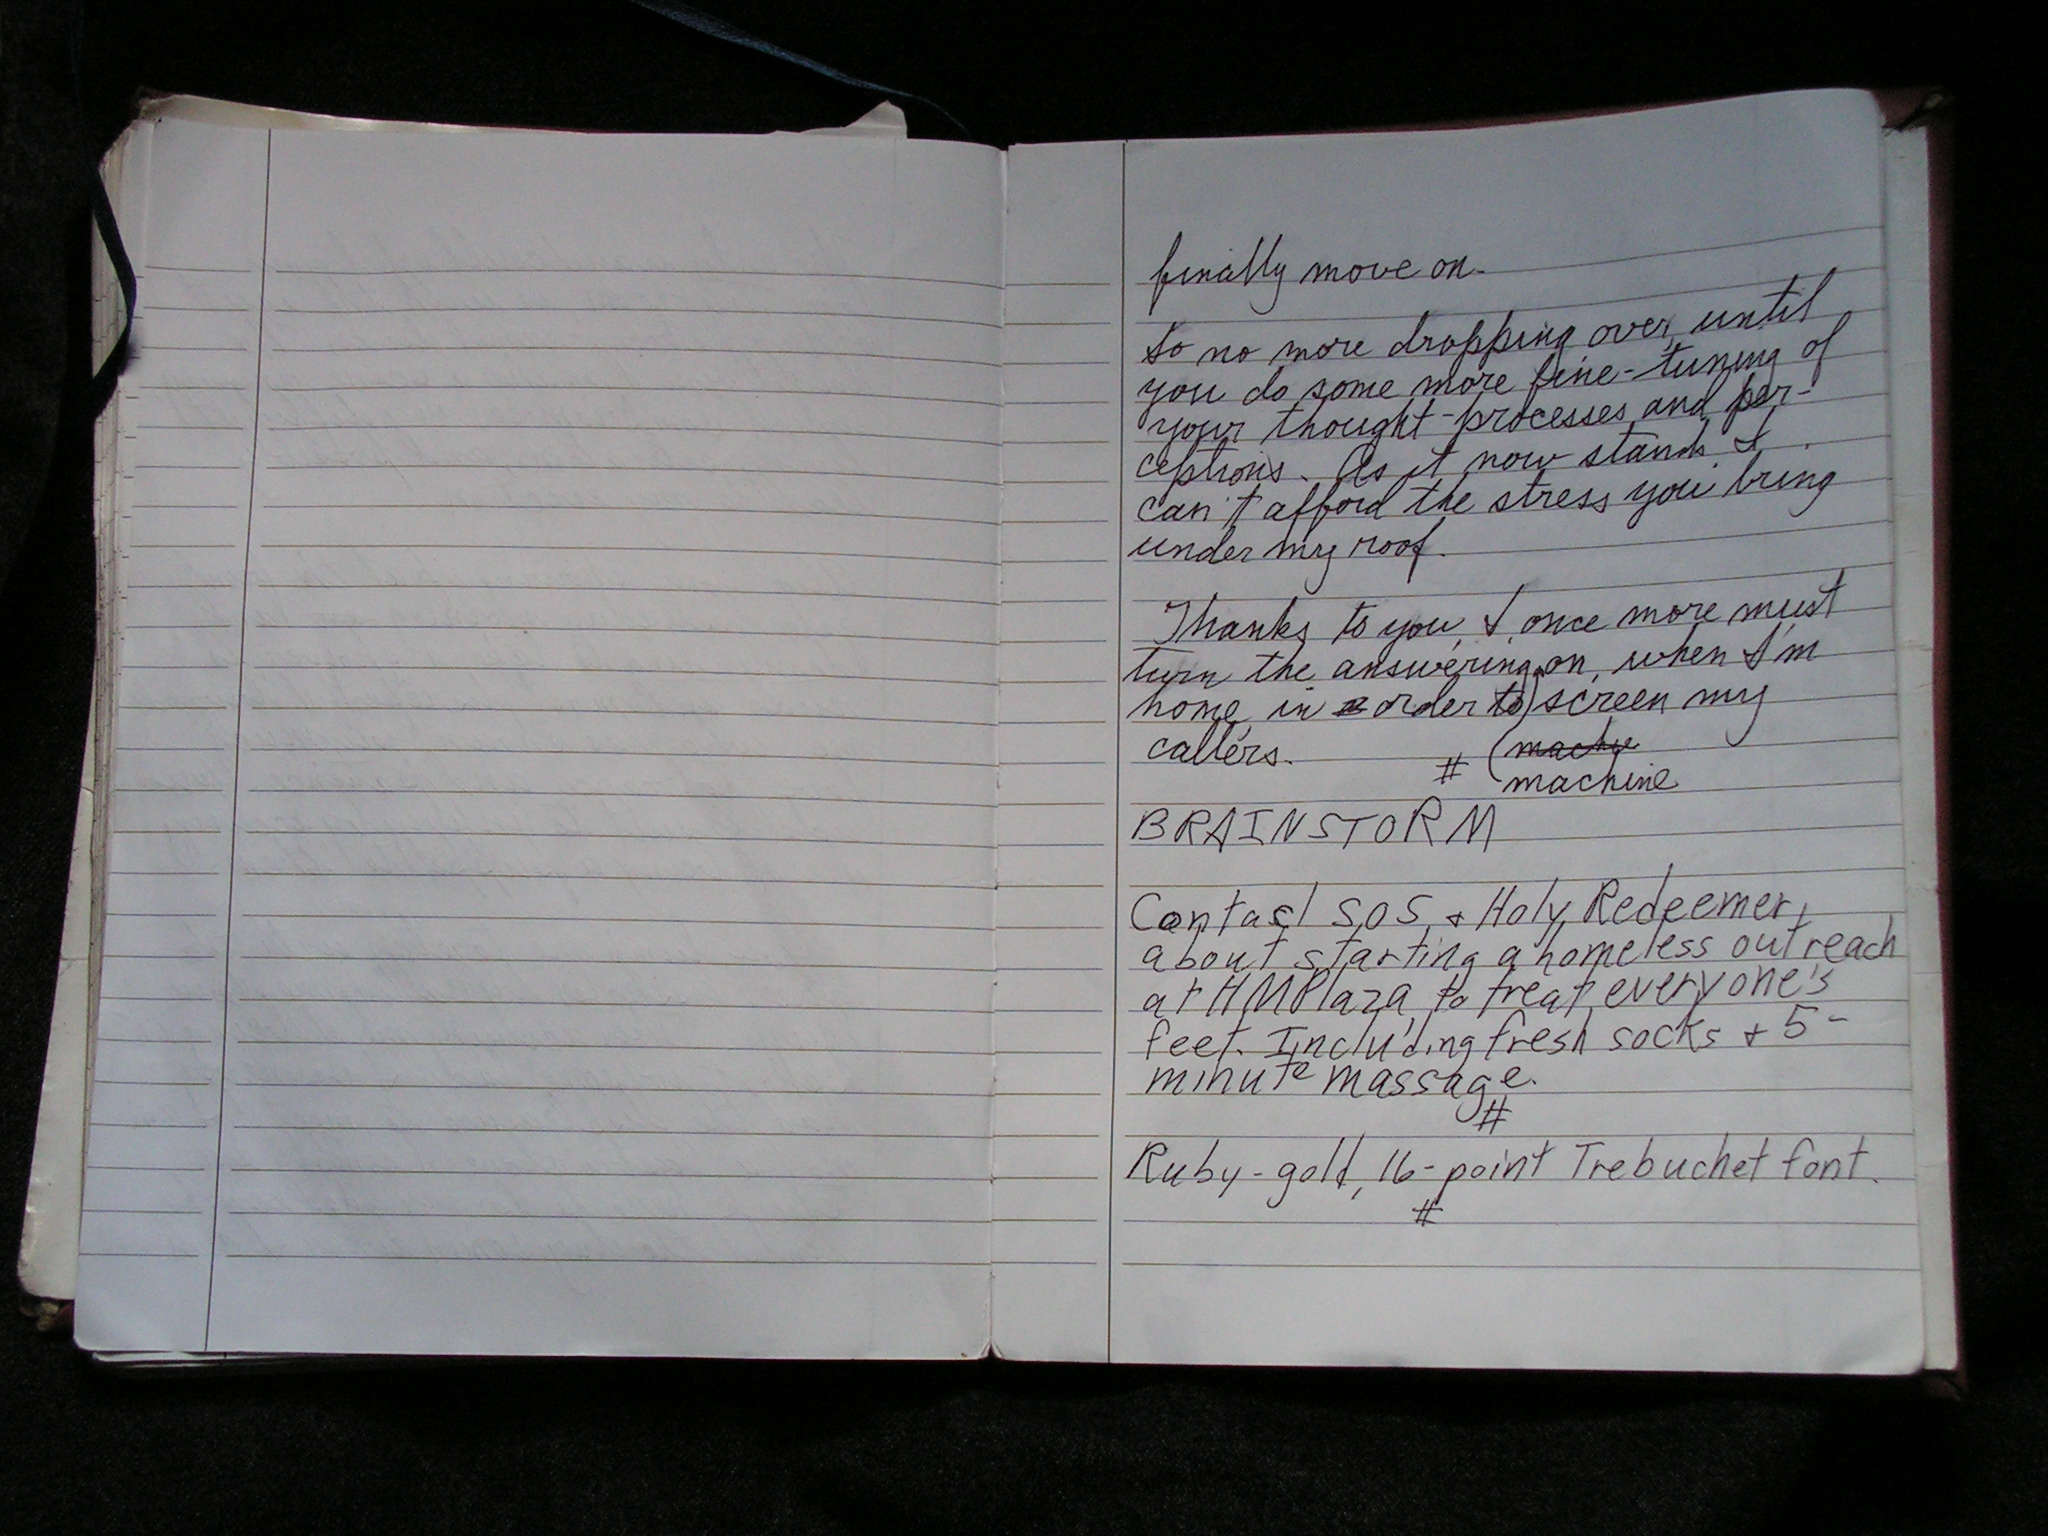 finally move on.
So no more dropping over, until
you do some more fine-tuning of
your thought-processes and per-
ceptions. As it now stands I
can't afford the stress you bring
under my roof.
Thanks to you, I, once more must
turn the answering on, when I'm
home, in order to screen my
callers.
# (machie
machine
BRAINSTORM
Contact SOS, + Holy Redeemer,
about starting a homeless outreach
at HMPlaza, to treat everyone's
feet. Including fresh socks + 5-
minute massage.
#
Ruby-gold, 16-point Trebuchet font.
#